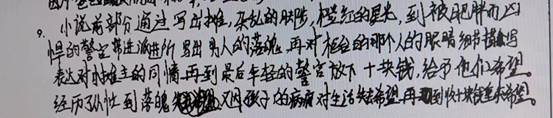 9. 小说前部分通过写出摊,杂乱的脚步,橙红的星光,到被肥胖而凶
悍的警官带进派出所,写出男人的落魄,再对柜台的那个人的眼睛细节描写
表达对小摊主的同情,再到最后年轻的警官放下十块钱,给予他们希望。
经历了从性到落魄 又因孩子的病痛对生活失去希望,再到收十块钱重燃希望。